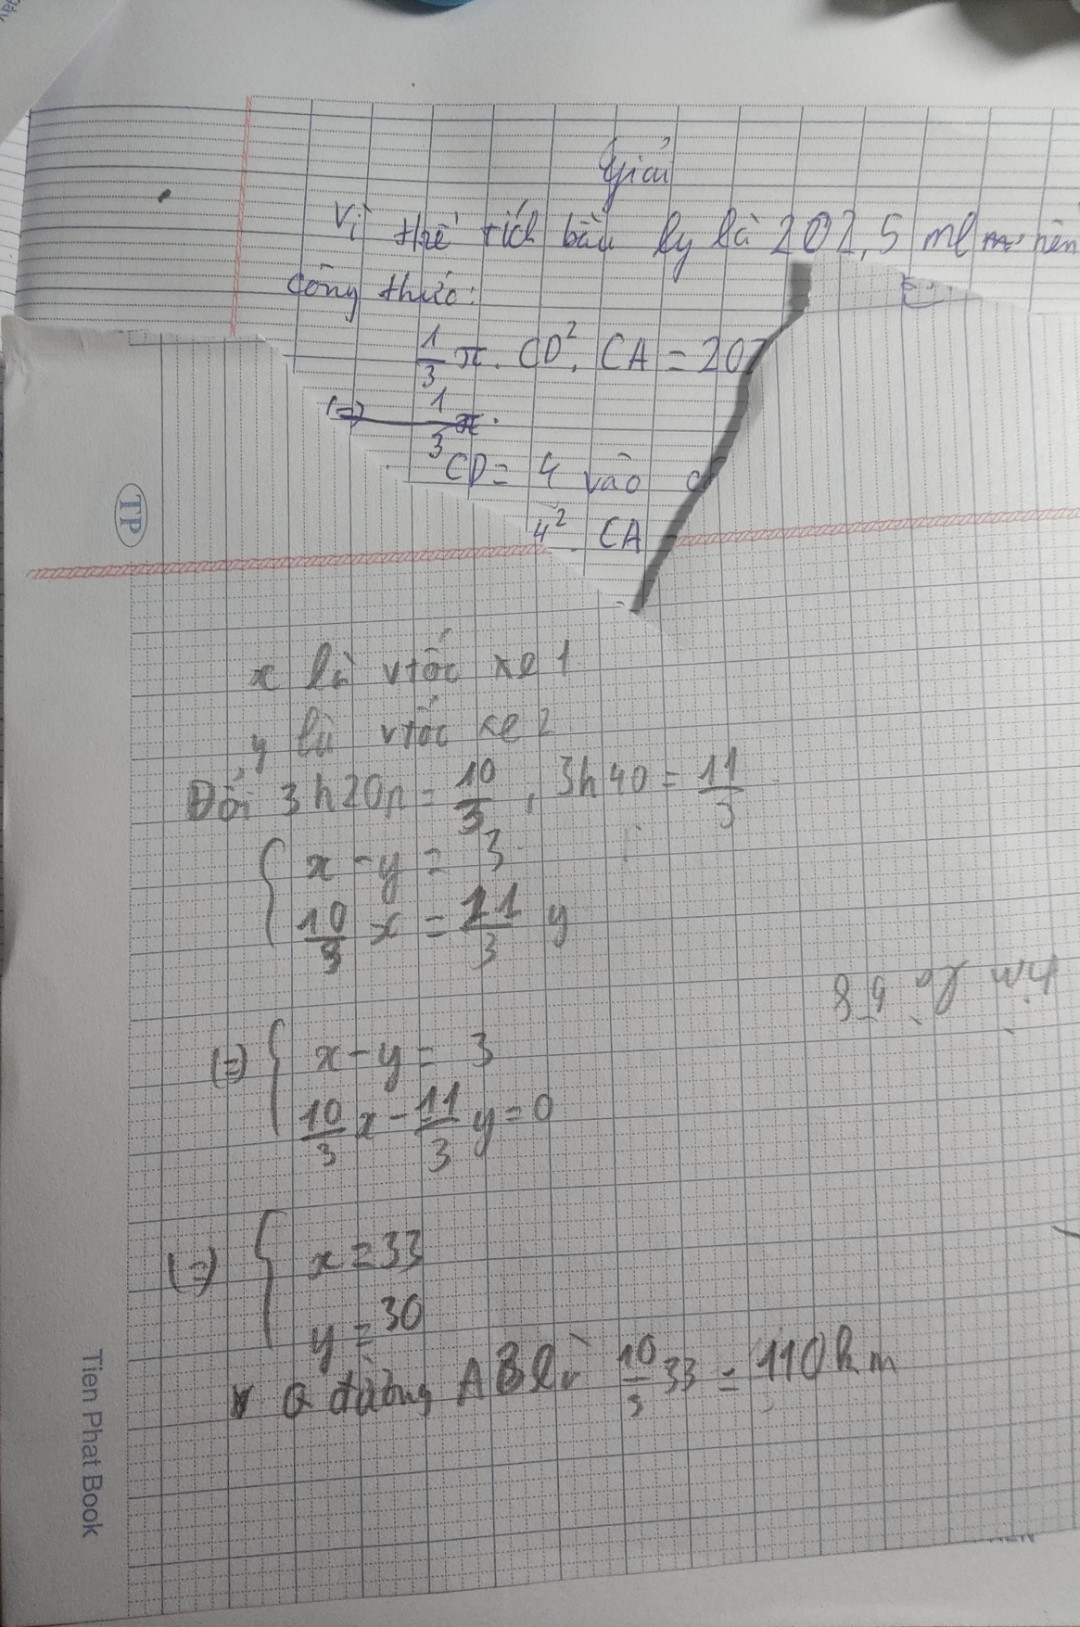 Giải
Vì thể tích bầu ly là 202,5 ml nên
công thức:
1/3 π. CD². CA = 202
(=) 1/3 π.
CD = 4 vào
4². CA
TP
x là vtốc xe 1
y là vtốc xe 2
Đổi 3h20p = 10/3, 3h40 = 11/3
{ x - y = 3
10/3 x = 11/3 y
(=) { x - y = 3
10/3 x - 11/3 y = 0
(=) { x = 33
y = 30
Q đường AB là 10/3 33 = 110km
Tien Phat Book